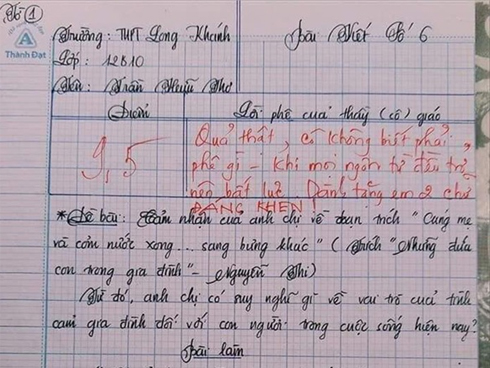 Tờ 1
A
Thành Đạt
Trường: THPT Long Khánh
Bài Viết Số 6
Lớp: 12B10
Tên: Trần Hữu Thơ
Điểm
Lời phê của thầy (cô) giáo
9,5
Quả thật, cô không biết phải
phê gì - khi mọi ngôn từ đều trở
nên bất lực. Dành tặng em 2 chữ
ĐÁNG KHEN!
*Đề bài: Cảm nhận của anh chị về đoạn trích "Cúng mẹ
và cơm nước xong... sang bưng khác" (Trích "Những đứa
con trong gia đình" - Nguyễn Thi)
Từ đó, anh chị có suy nghĩ gì về vai trò của tình
cảm gia đình đối với con người trong cuộc sống hiện nay?
Bài làm